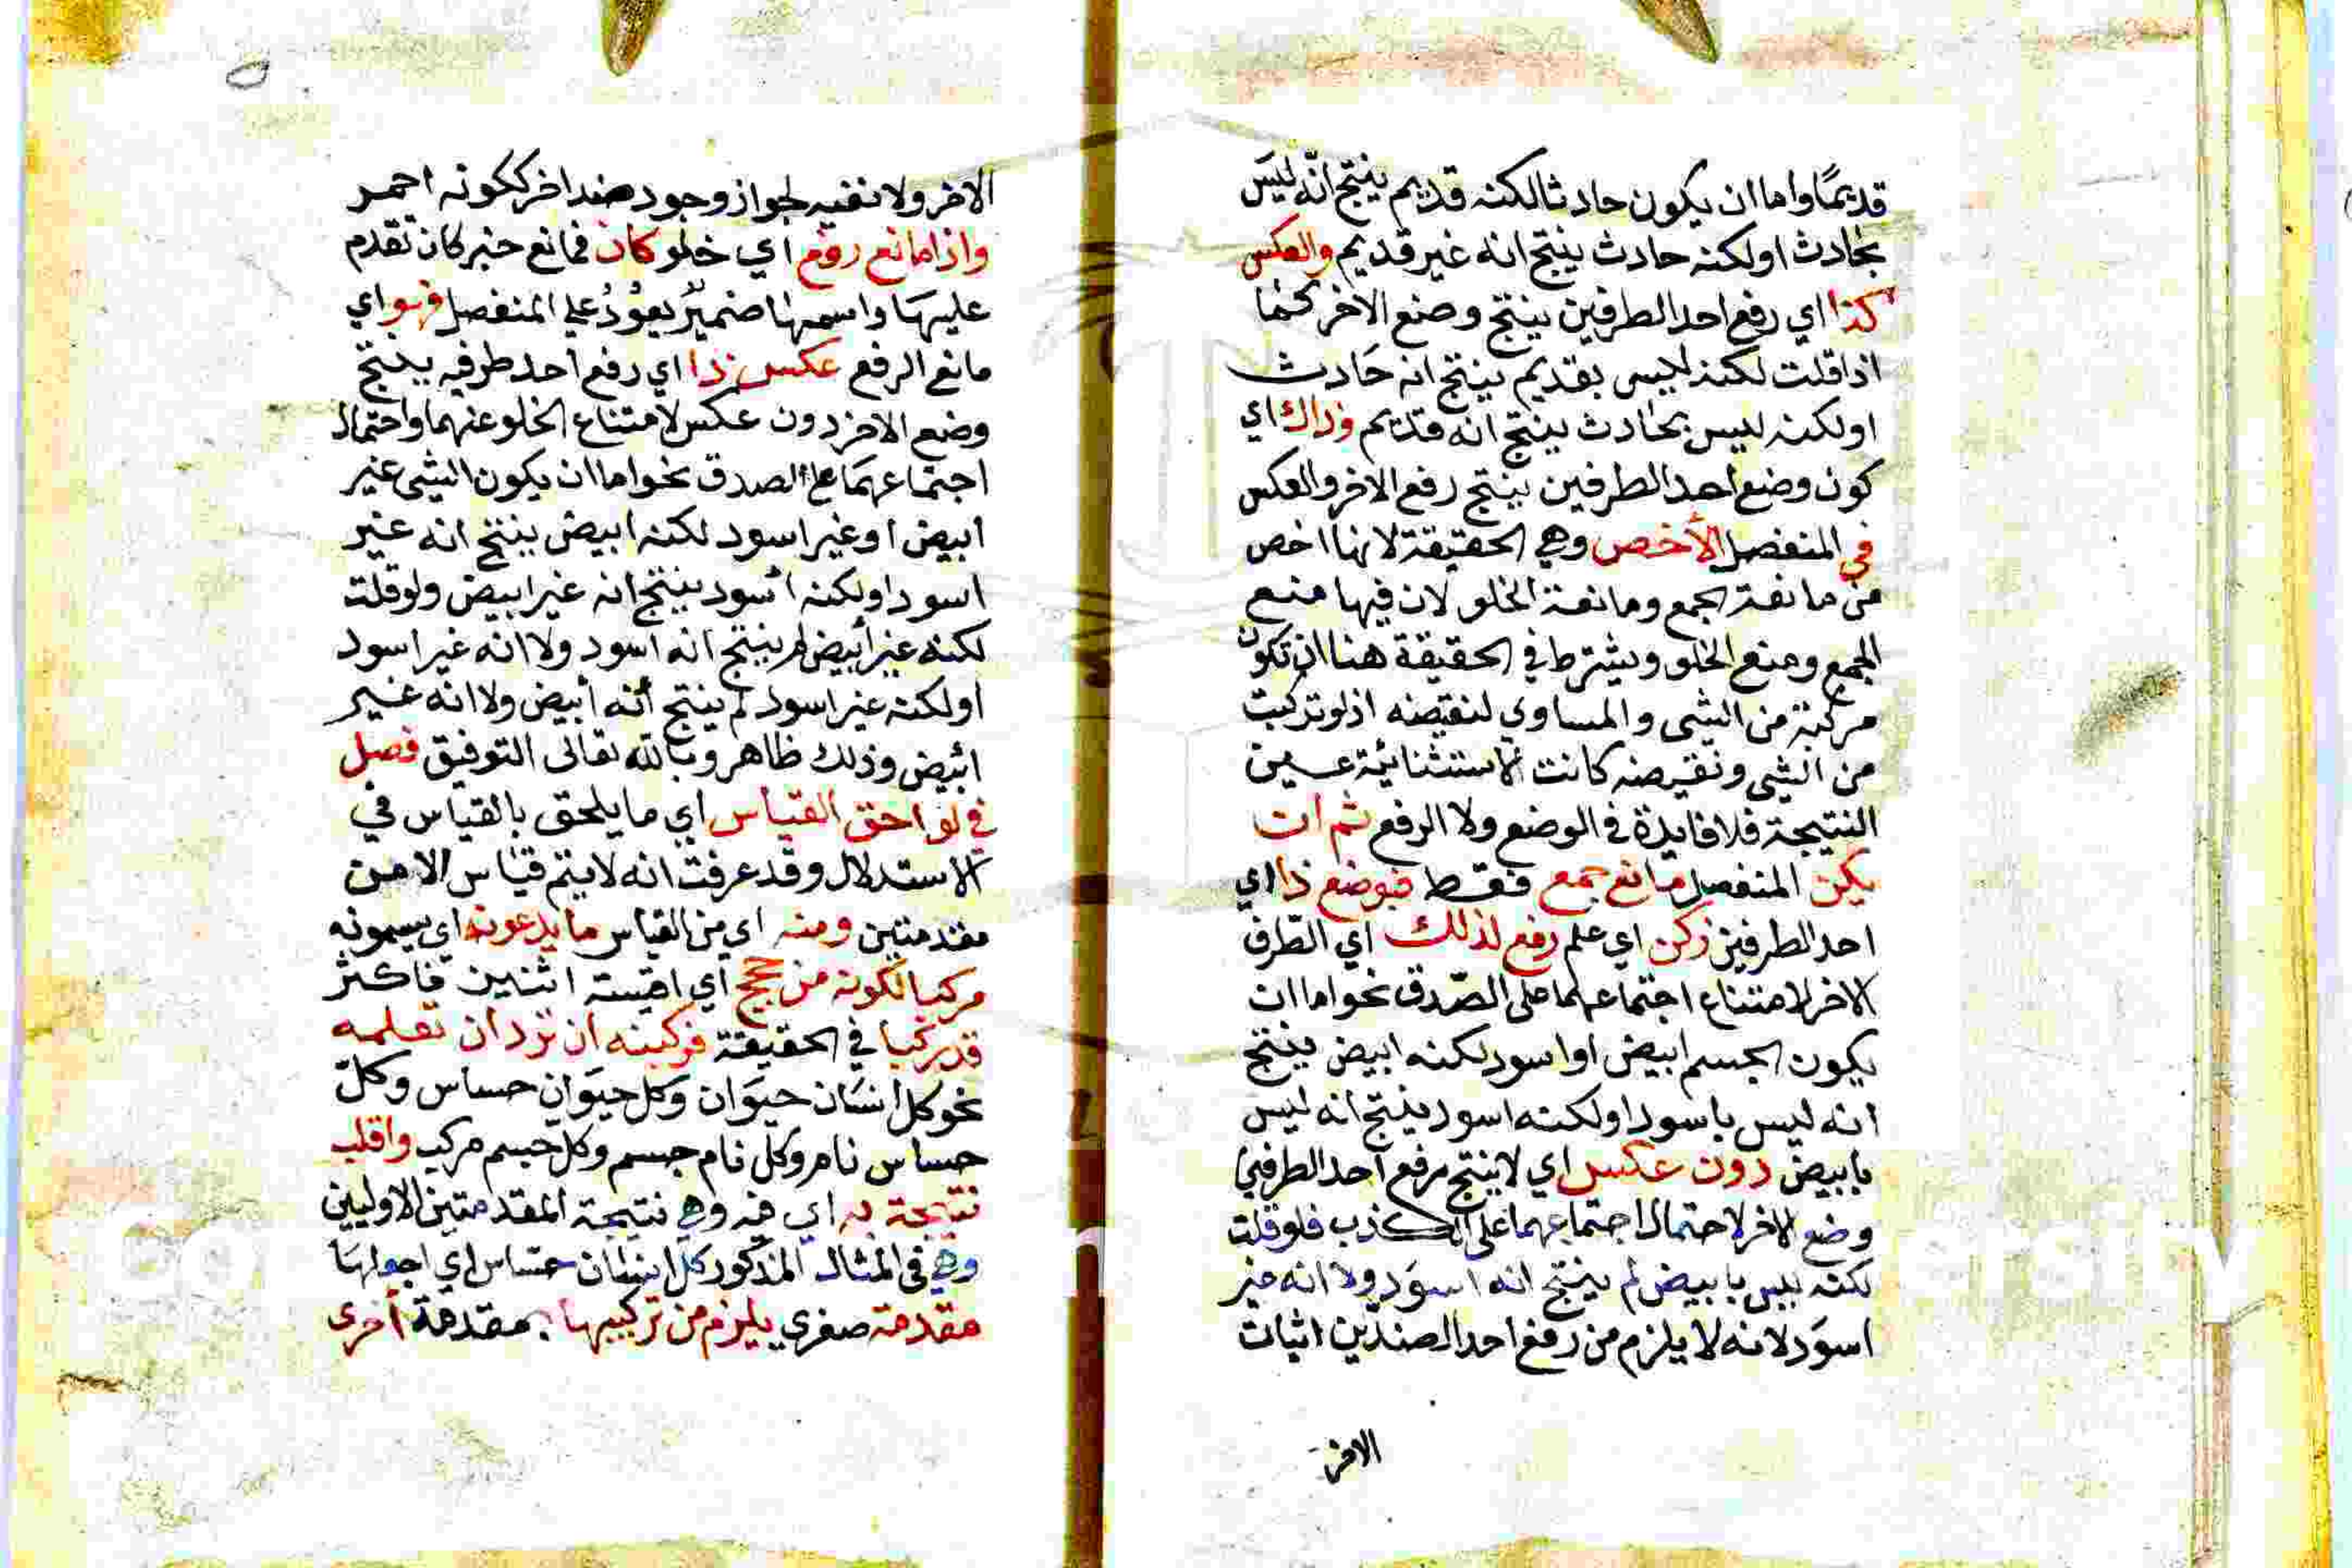 قديمًا واما ان يكون حادثا لكنه قديم ينتج انّه ليسَ
بحادث او لكنه حادث ينتج انه غير قديم والعكس
كذا اي رفع احد الطرفين ينتج وضع الاخر كما
اذا قلت لكنه ليس بقديم ينتج انه حَادث
او لكنه ليس بحادث ينتج انه قديم وذاك اي
كون وضع احد الطرفين ينتج رفع الاخر والعكس
في المنفصل الأخص وهي الحقيقة لانها اخص
من مانعة الجمع ومانعة الخلو لان فيها منع
الجمع ومنع الخلو ويشترط في الحقيقة هنا ان تكون
مركبة من الشى والمساوي لنقيضه اذ لو تركبت
من الشى ونقيضه كانت الاستثنائية عين
النتيجة فلا فايدة في الوضع ولا الرفع ثم ان
يكن المنفصل مانع جمع فقط فبوضع ذا اي
احد الطرفين زكن اي علم رفع لذلك اي الطّرف
الاخر لامتناع اجتماعهما على الصّدق نحو اما ان
يكون الجسم ابيض او اسود لكنه ابيض ينتج
انه ليس باسود او لكنه اسود ينتج انه ليس
بابيض دون عكس اي لا ينتج رفع احد الطرفين
وضع الاخر لاحتمال اجتماعهما على الكذب فلو قلت
لكنه ليس بابيض لم ينتج انه اسوَد ولا انه غير
اسوَد لانه لا يلزم من رفع احد الضدّين اثبات
الاخر
الاخر ولا نفيه لجواز وجود ضد اخر ككونه احمر
واذا مانع رفع اي خلو كان فمانع خبر كان تقدم
عليهَا واسمها ضميرٌ يعوُدُ على المنفصل فهو اي
مانع الرفع عكس ذا اي رفع احد طرفيه ينتج
وضع الاخر دون عكس لامتناع الخلو عنهما واحتمال
اجتماعهمَا على الصدق نحو اما ان يكون الشى غير
ابيض او غير اسود لكنه ابيض ينتج انه غير
اسود او لكنه أسود ينتج انه غير ابيض ولو قلت
لكنه غير أبيض لم ينتج انه اسود ولا انه غير اسود
او لكنه غير اسود لم ينتج أنه أبيض ولا انه غير
ابيض وذلك ظاهر وبالله تعالى التوفيق فصل
في لواحق القياس اي ما يلحق بالقياس في
الاستدلال وقد عرفت انه لا يتم قياس الا من
مقدمتين ومنه اي من القياس ما يدعونه اي يسمونه
مركبا لكونه من حجج اي اقيسة اثنين فاكثر
قد ركبا في الحقيقة فركبنه ان ترد ان تعلمه
نحو كل انسَان حيوَان وكل حيوَان حساس وكلّ
حساس نام وكل نام جسم وكل جسم مركب واقلب
نتيجة به اي فيه وهي نتيجة المقدمتين الاوليين
وهي فى المثال المذكور كل انسان حساس اي اجعلها
مقدمة صغري يلزم من تركيبها بمقدمة أخرى